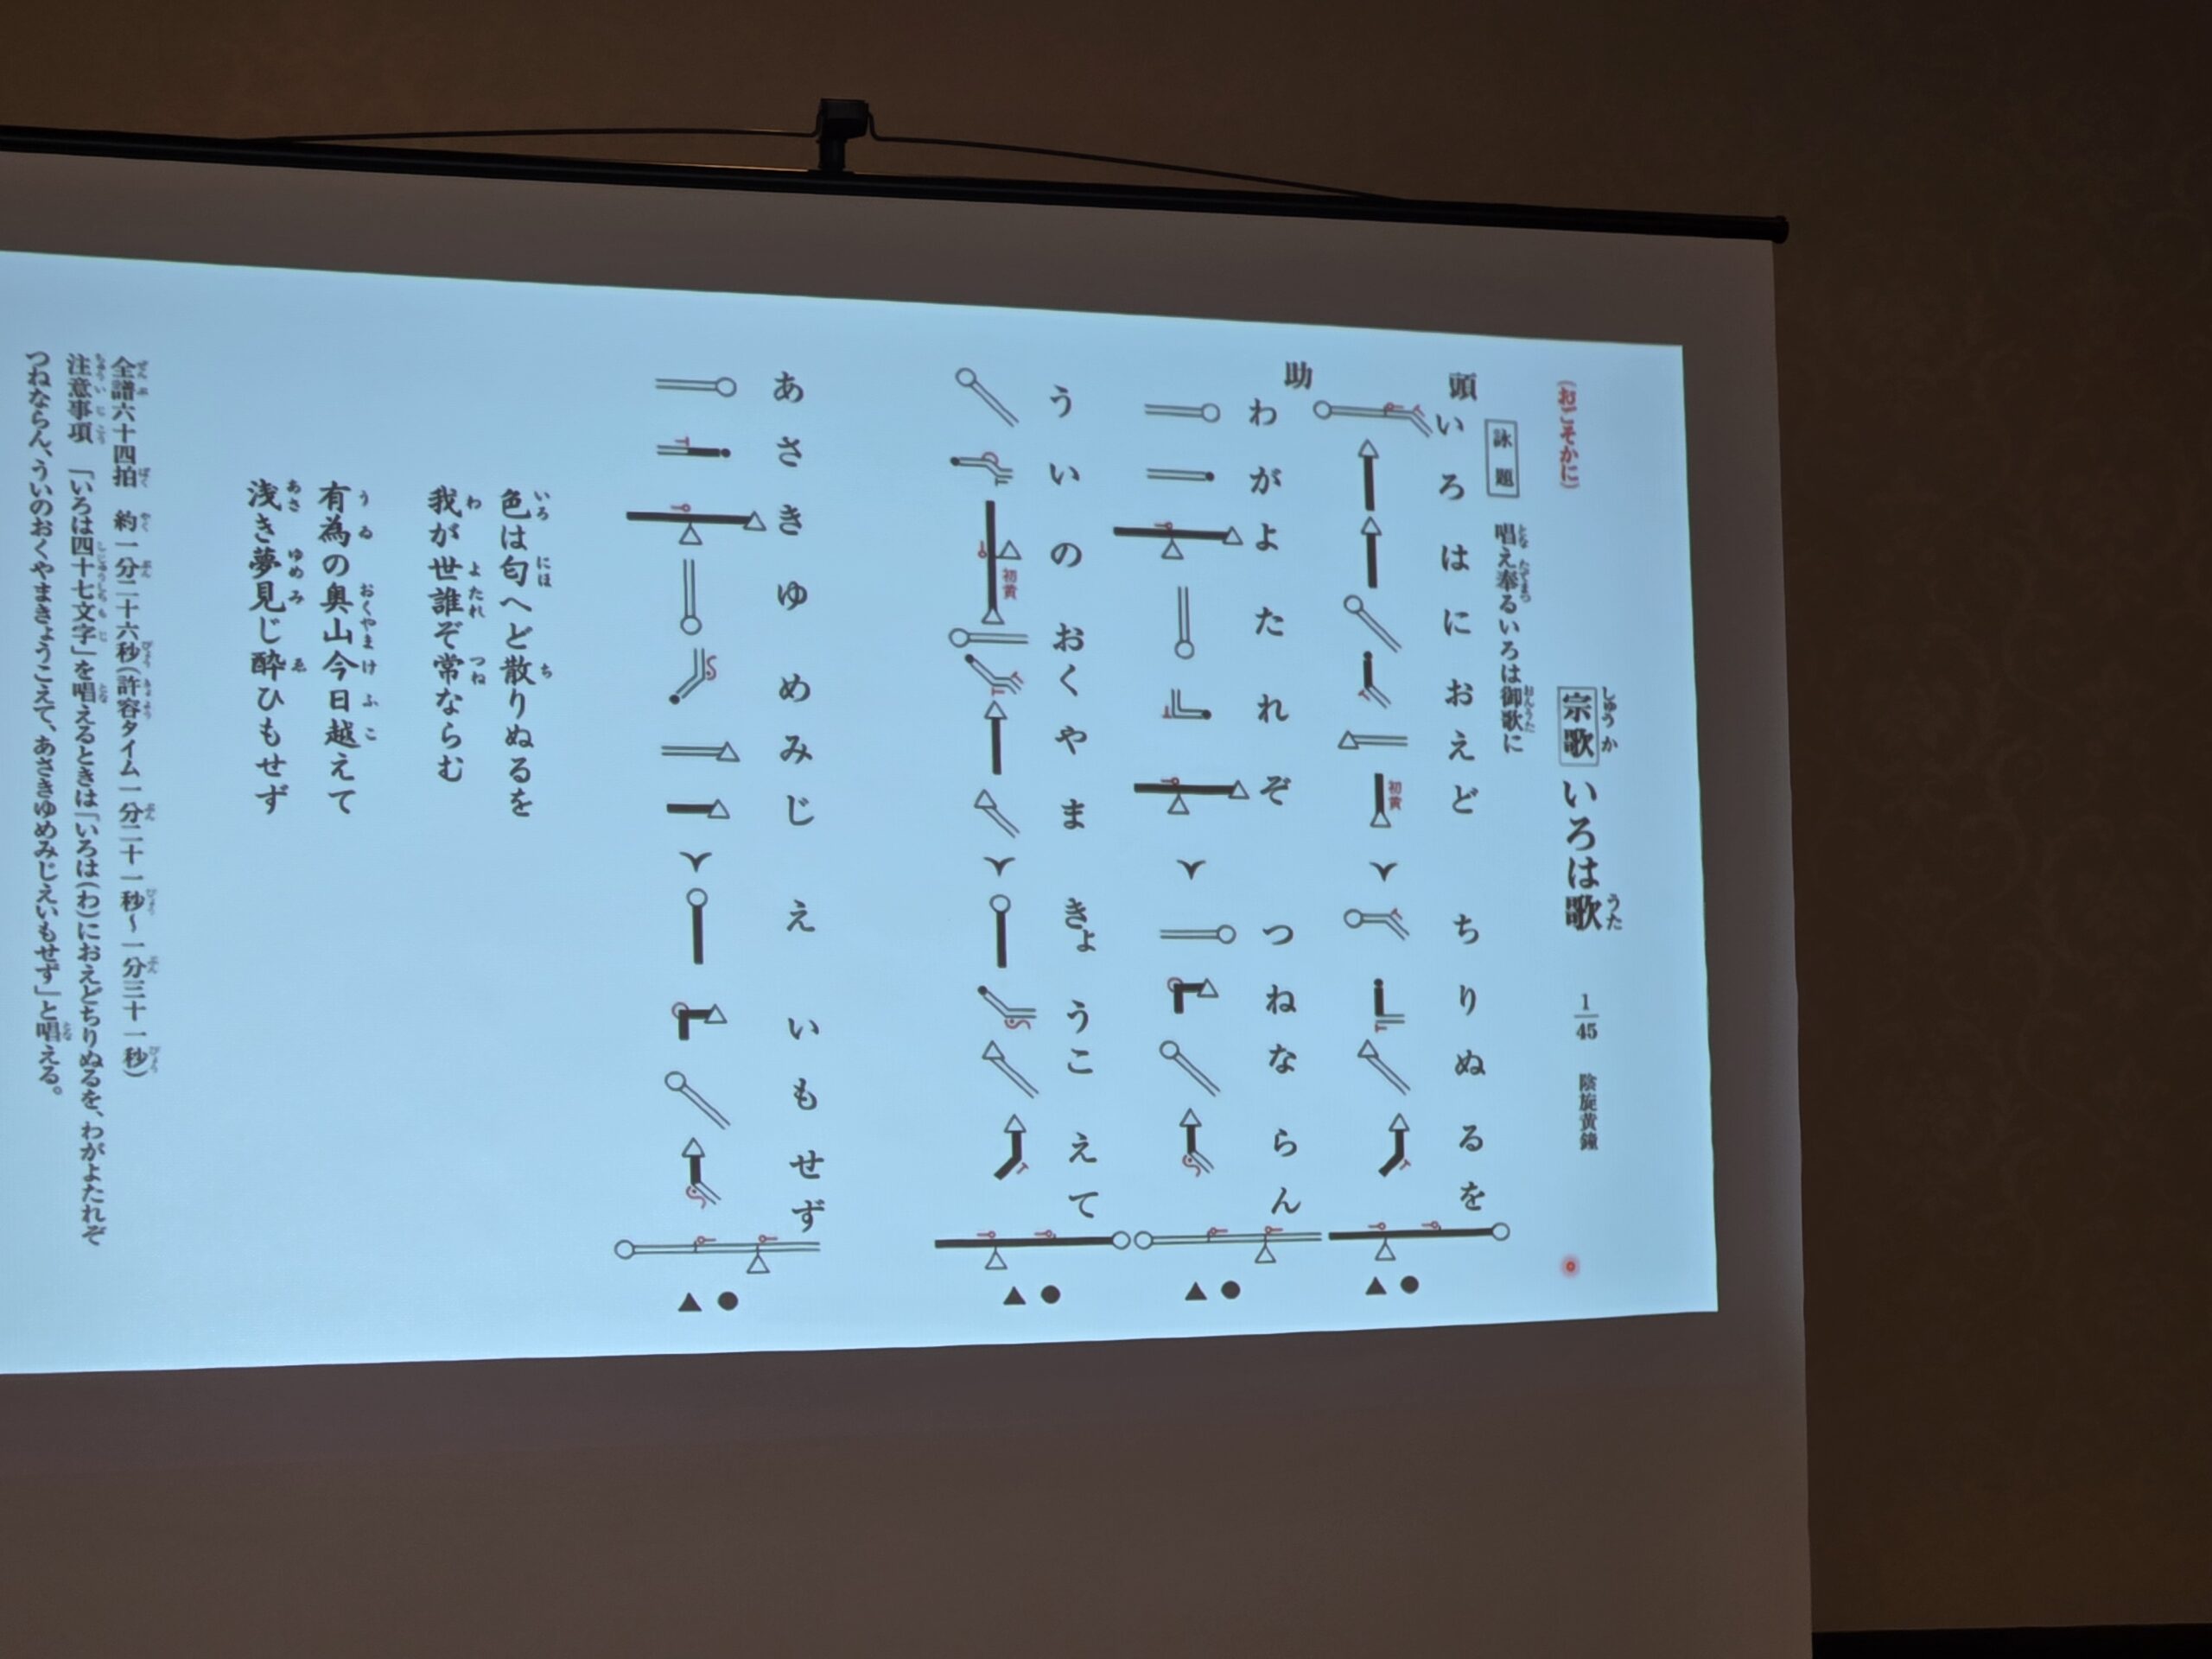 (おごそかに)
宗歌 いろは歌 1/45 陰旋黄鐘
詠題 唱え奉るいろは御歌に
頭 いろはにおえど ちりぬるを
初黄
助 わがよたれぞ つねならん
ういのおくやま きょうこえて
初黄
あさきゆめみじ えいもせず
色は匂へど散りぬるを
我が世誰ぞ常ならむ
有為の奥山今日越えて
浅き夢見じ酔ひもせず
全譜六十四拍 約一分二十六秒(許容タイム一分二十一秒~一分三十一秒)
注意事項 「いろは四十七文字」を唱えるときは「いろは(わ)におえどちりぬるを、わがよたれぞ
つねならん、ういのおくやまきょうこえて、あさきゆめみじえいもせず」と唱える。